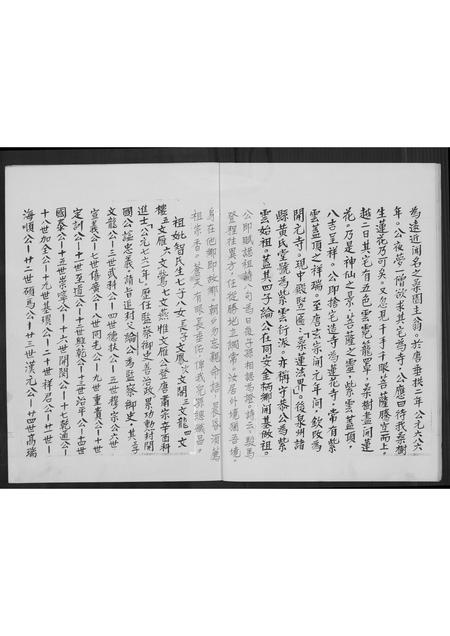 為遠近聞名之桑園主翁。於唐垂拱二年公元六八六
年。公夜夢一僧欲求其宅為寺，公應曰待我桑樹
生蓮花乃可矣。又忽見千手千眼菩薩騰空而上。
越二日其宅有五色雲雲氣籠罩，桑樹盡開蓮
花。乃是神仙之景，菩薩之靈，紫雲蓋頂，
八吉呈祥。公即捨宅造寺為蓮花寺，常有紫
雲蓋頂之祥瑞。至唐玄宗開元年間，欽改為
開元寺。現中殿竪匾：「桑蓮法界」。後泉州諸
縣黃氏堂號為紫雲衍派。亦稱守恭公為紫
雲始祖。蓋其四子綸公在同安金柄鄉開基做祖。
公即賦認祖詩八句為日後子孫相認憑證詩云：駿馬
登程往異方，任從勝地立綱常。汝居外境猶吾境，
身在他鄉即故鄉。朝夕勿忘親命語，晨昏須薦
祖宗香。蒼天有眼長垂佑，俾我兒孫總熾昌。
祖妣智氏生七子八女，長子文 次文 三文龍四文
樓五文雁六文鸞七文燕惟文雁公登唐肅宗辛酉科
進士（公元七 一年）歷任監察御史善治政累功勳封開
國公諡忠義，請旨追封父綸公為監察御史，其子
文龍公一二世武科公一三四世德 公一三 世 宗公六世
宣義公一七世僖廣公一八世同光公一九世重貴公一十世
定訓公一十一世至道公一十二世 乾公一十三世治平公一十四世
國泰公一十五世崇寧公一十六世開閏公一十七乾通公一
十八世加全公一十九世基頊公一二十世祥名公一廿一世
海順公一廿二世碩馬公一廿三世漢元公一廿四世萬瑞